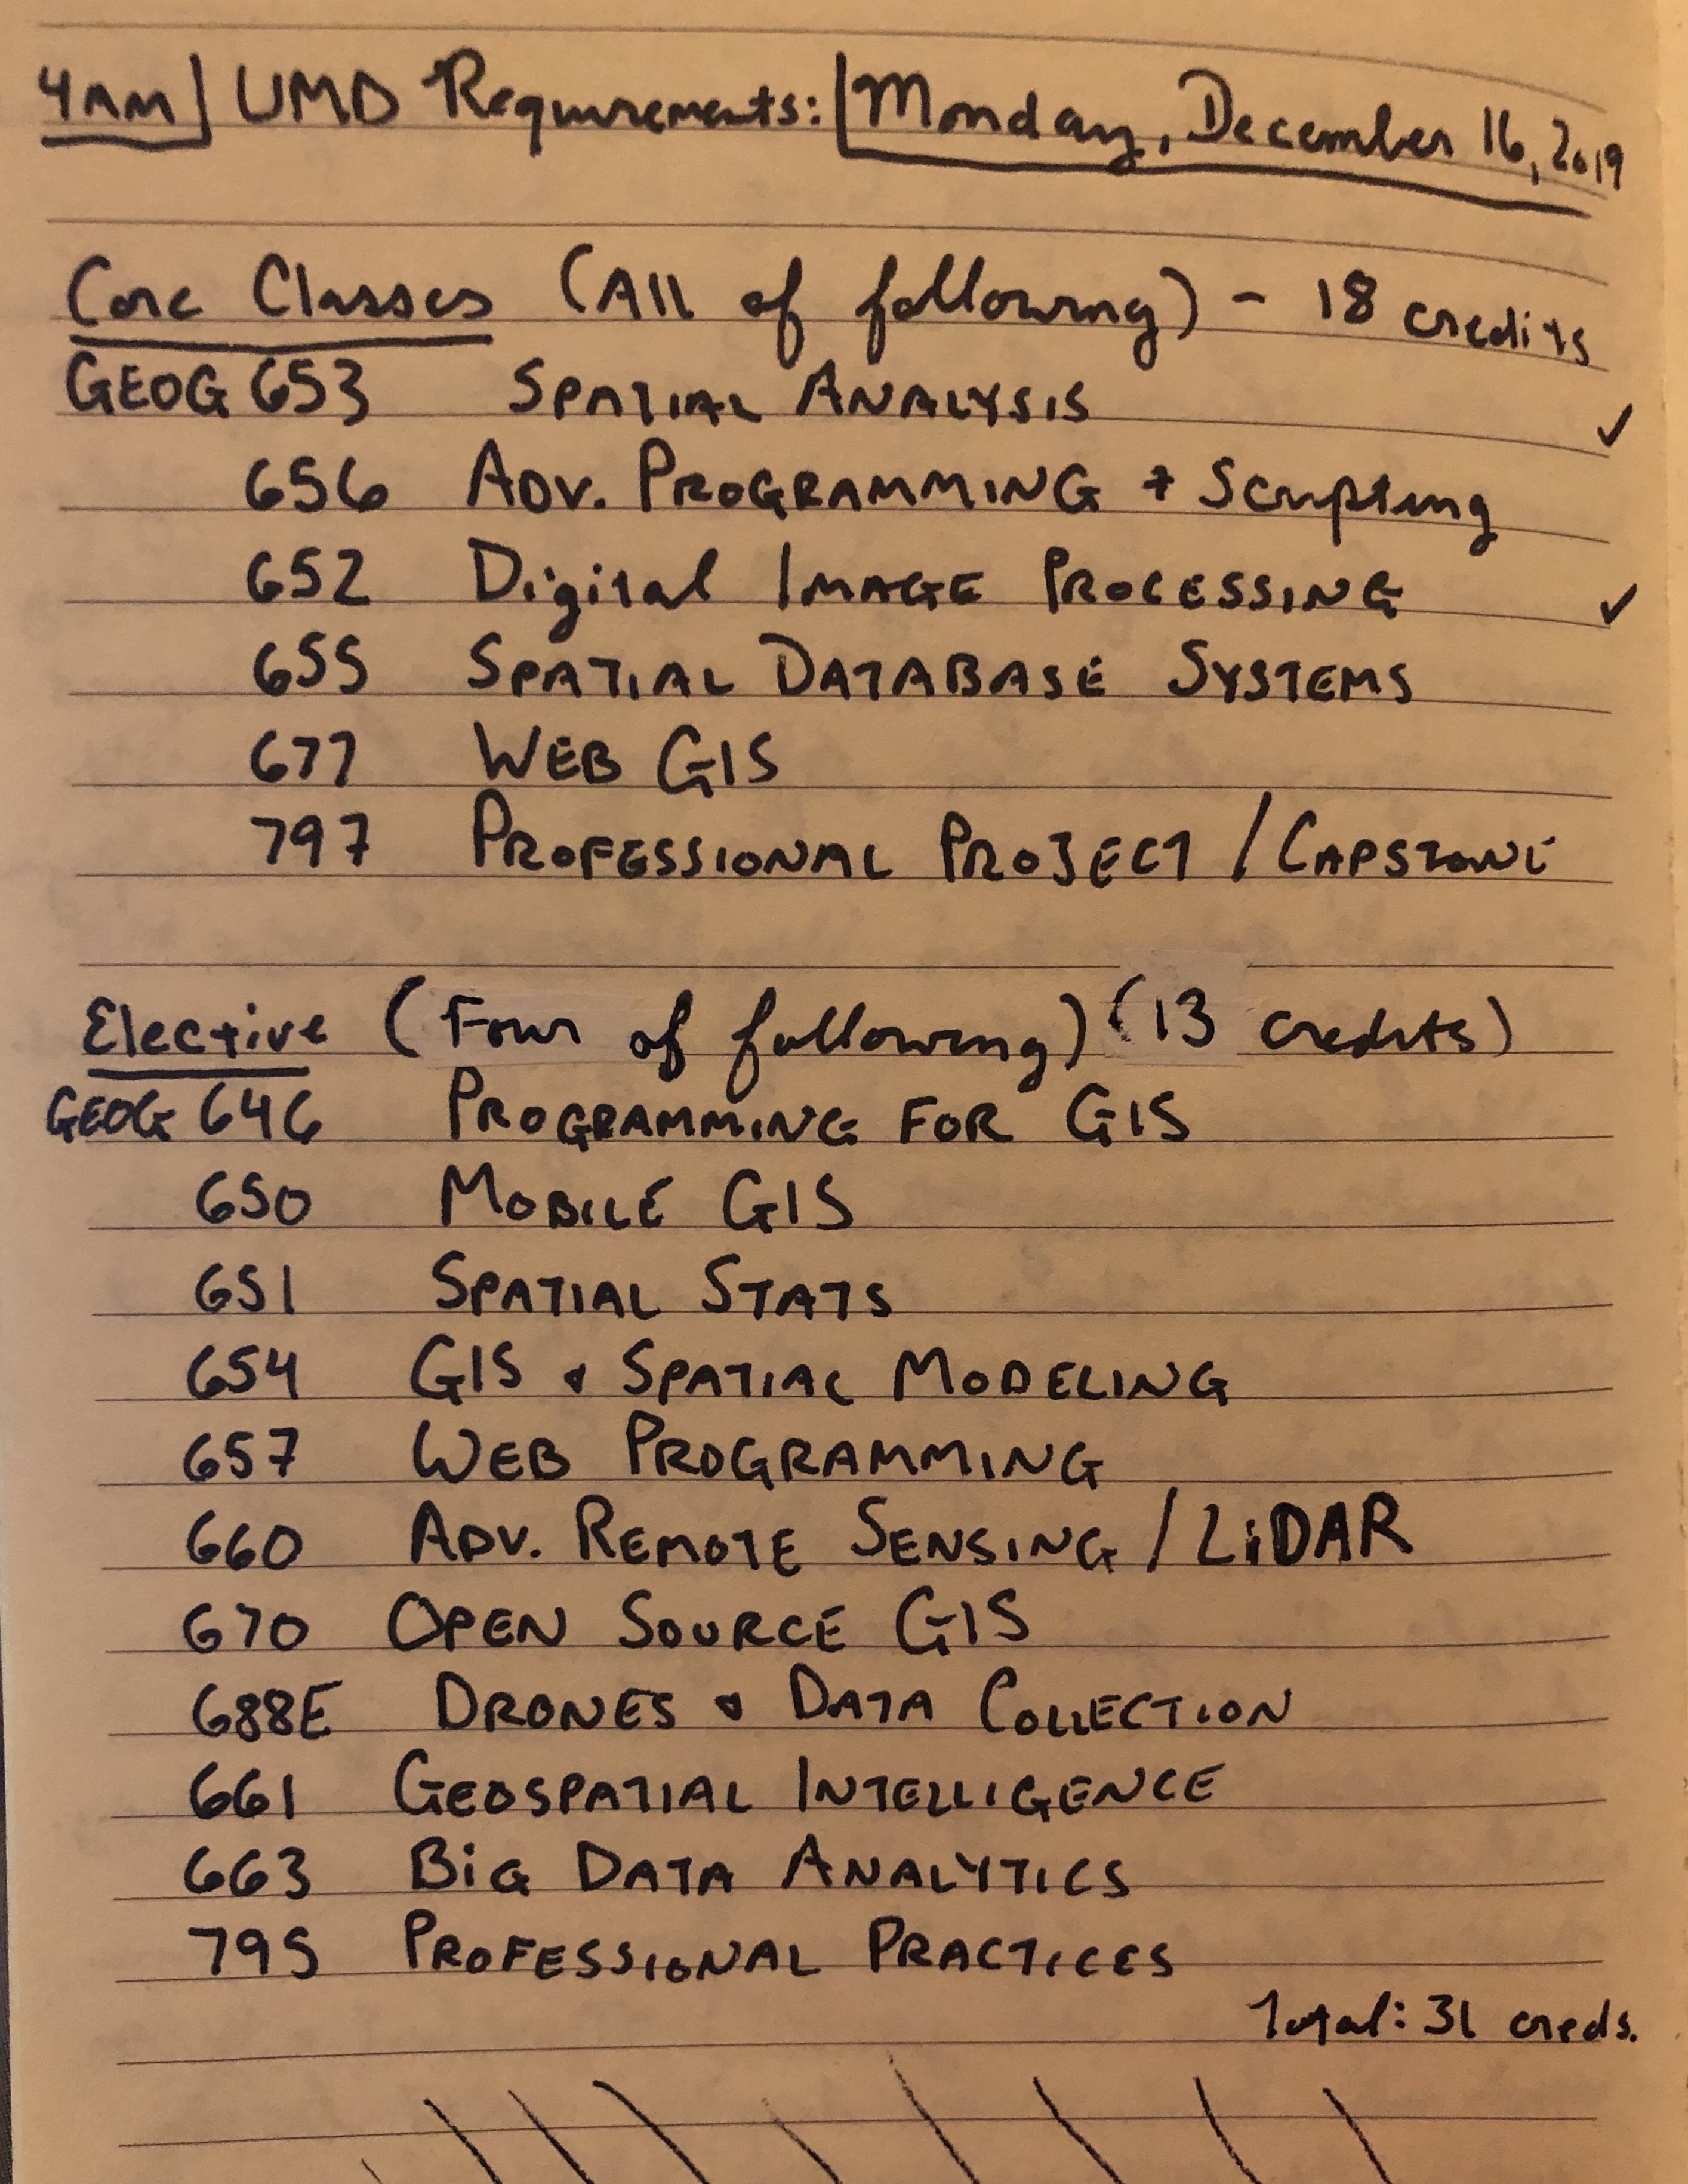 4AM] UMD Requirements: [Monday, December 16, 2019
Core Classes (All of following) - 18 credits
GEOG 653 SPATIAL ANALYSIS ✓
656 ADV. PROGRAMMING + Scripting
652 Digital IMAGE PROCESSING ✓
655 SPATIAL DATABASE SYSTEMS
677 WEB GIS
797 PROFESSIONAL PROJECT / CAPSTONE
Elective (Four of following) (13 credits)
GEOG 646 PROGRAMMING FOR GIS
650 MOBILE GIS
651 SPATIAL STATS
654 GIS & SPATIAL MODELING
657 WEB PROGRAMMING
660 ADV. REMOTE SENSING / LiDAR
670 OPEN SOURCE GIS
688E DRONES & DATA COLLECTION
661 GEOSPATIAL INTELLIGENCE
663 BiG DATA ANALYTICS
795 PROFESSIONAL PRACTICES
Total: 31 creds.